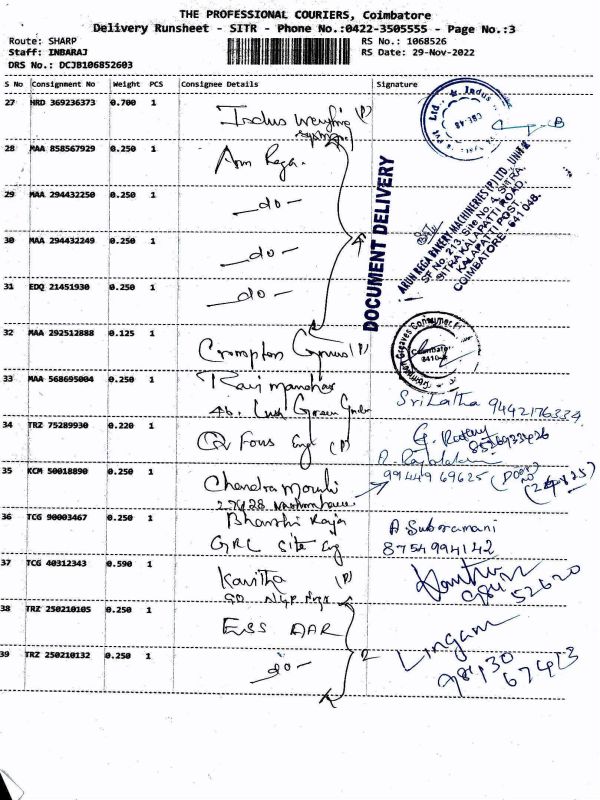 THE PROFESSIONAL COURIERS, Coimbatore
Delivery Runsheet - SITR - Phone No.:0422-3505555 - Page No.:3
Route: SHARP RS No.: 1068526
Staff: INBARAJ RS Date: 29-Nov-2022
DRS No.: DCJB106852603
S No Consignment No Weight PCS Consignee Details Signature
27 HRD 369236373 0.700 1 Indus Weighing (P)
systems
28 MAA 858567929 0.250 1 Arun Rega.
29 MAA 294432250 0.250 1 —do—
30 MAA 294432249 0.250 1 —do— 4
31 EDQ 21451930 0.250 1 —do—
DOCUMENT DELIVERY
ARUN REGA BAKERY MACHINERIES (P) LTD, UNIT-II
SF No. 213, Site No. 4, SITRA,
SITRA KALAPATTI ROAD,
KALAPATTI POST,
COIMBATORE - 641 048.
32 MAA 292512888 0.125 1 Crompton Greaves (P)
33 MAA 568695004 0.250 1 Ravi manohar
Srilatha 9442176334
34 TRZ 75289930 0.220 1 Engg (P)
35 KCM 50018890 0.250 1 Chandra Mouli
99449 69625
36 TCG 90003467 0.250 1 Bharathi Raja
GRL Site Eng
A. Subramani
8754994142
37 TCG 40312343 0.590 1 Kavitha (P)
52620
38 TRZ 250210105 0.250 1 ESS AAR
39 TRZ 250210132 0.250 1 —do— 2
Lingam
67413